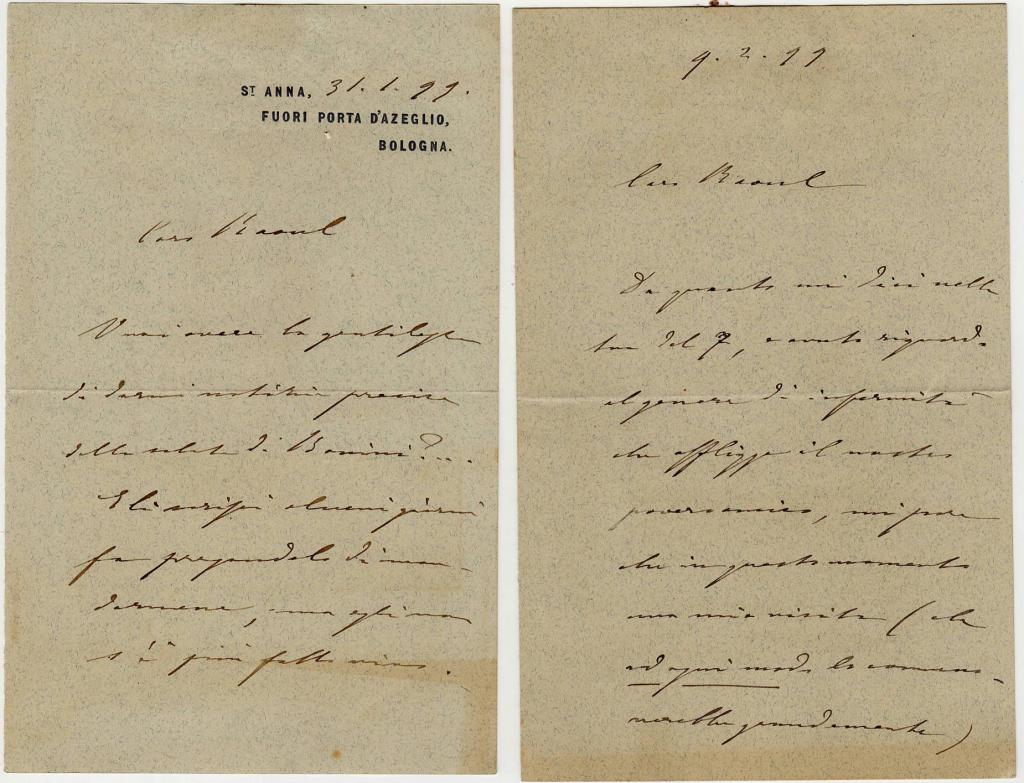 ST ANNA, 31. 1. 99.
FUORI PORTA D'AZEGLIO,
BOLOGNA.
Caro Raoul
Vuoi avere la gentilezza
di darmi notizie precise
della salute di Bonini?...
Gli scrissi alcuni giorni
fa pregandolo di man-
darmene, ma egli non
s'è più fatto vivo.
9. 2. 99
Caro Raoul
Da quanto mi dici nella
tua del 7, e avuto riguardo
al genere di infermità
che affligge il nostro
povero amico, mi pare
che in questo momento
una mia visita (che
ad ogni modo lo commuo-
verebbe grandemente)